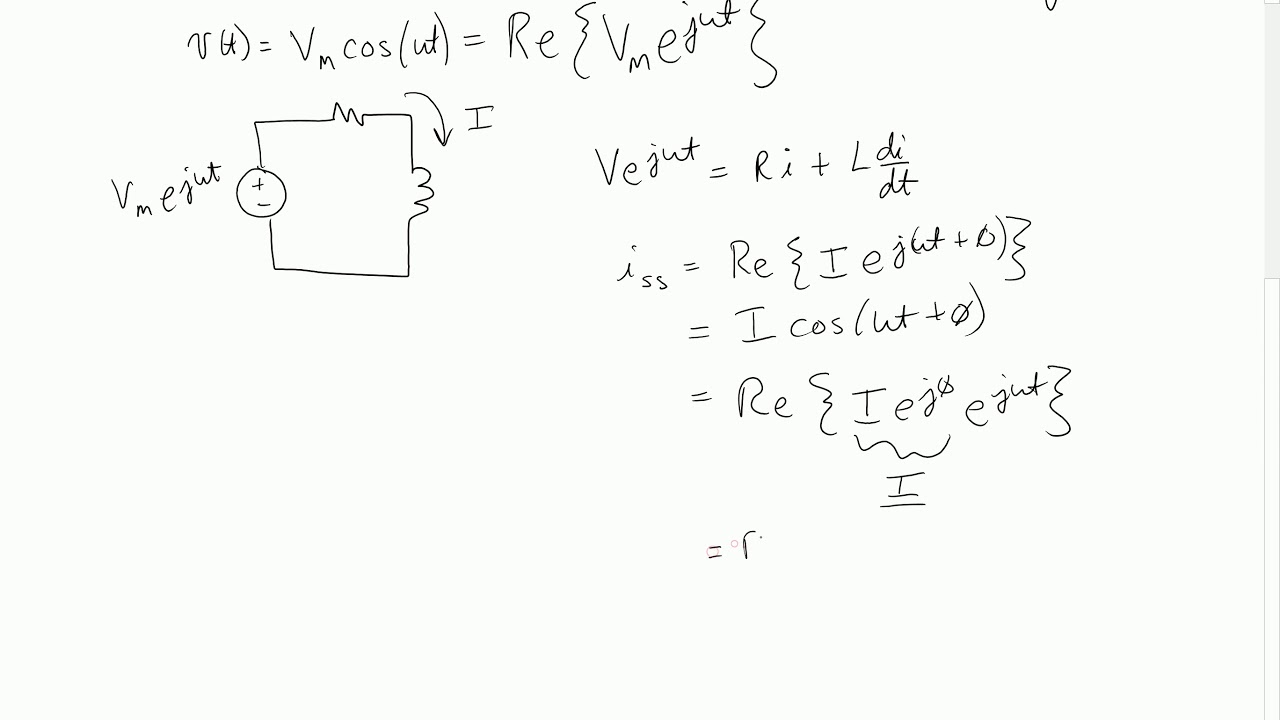 v(t) = Vm cos(ωt) = Re{Vm e^jωt}
I
Vm e^jωt
+
-
Ve^jωt = Ri + L di/dt
iss = Re{I e^j(ωt + ø)}
= I cos(ωt + ø)
= Re{I e^jø e^jωt}
I
=